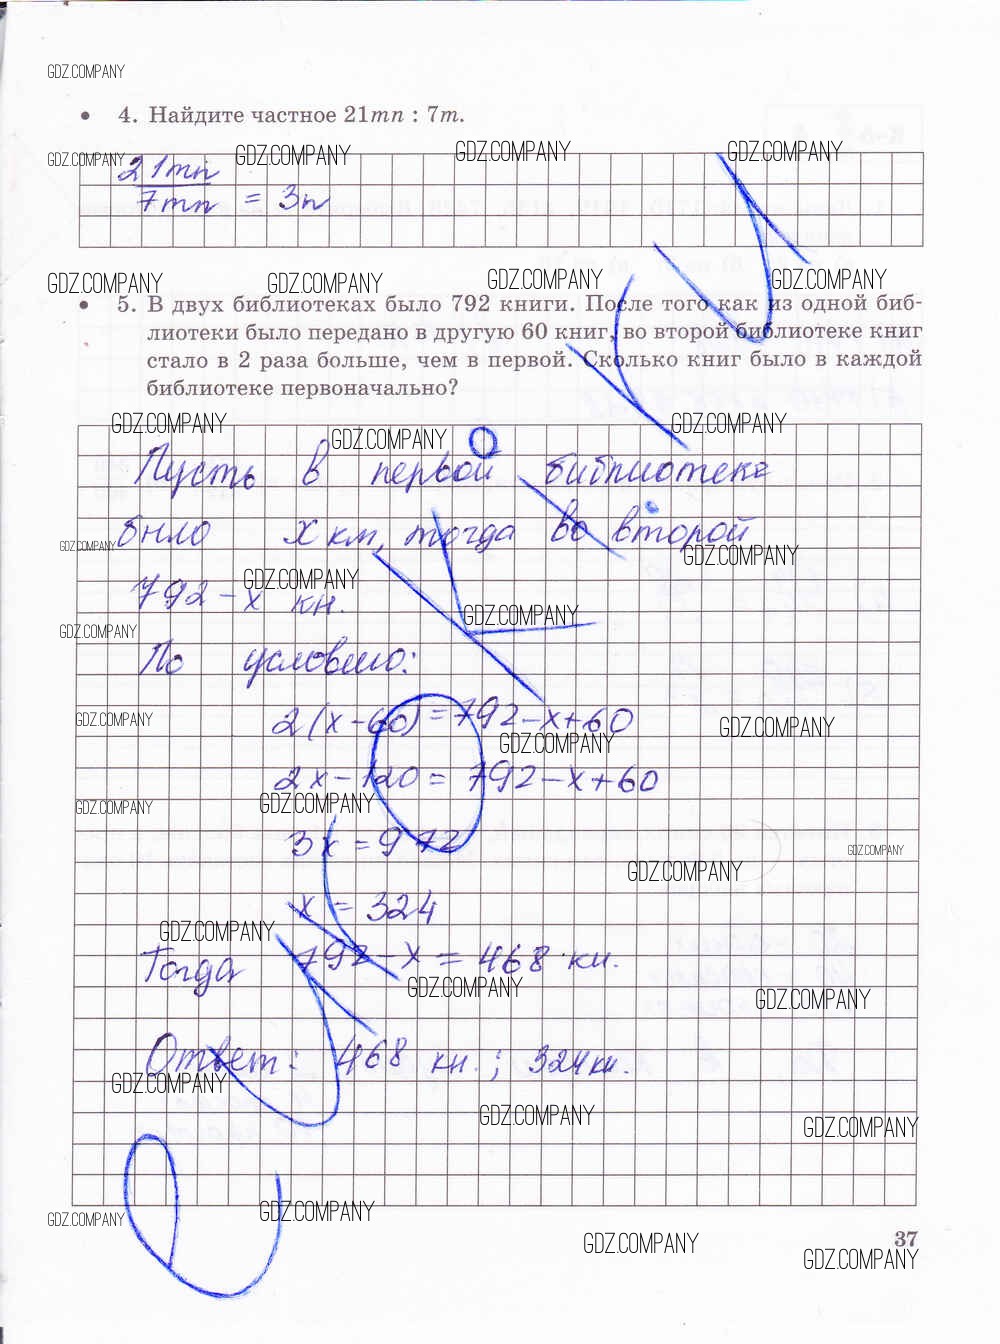 GDZ.COMPANY
4. Найдите частное 21mn : 7m.
GDZ.COMPANY GDZ.COMPANY GDZ.COMPANY GDZ.COMPANY
21mn
7mn = 3n
GDZ.COMPANY GDZ.COMPANY GDZ.COMPANY GDZ.COMPANY
5. В двух библиотеках было 792 книги. После того как из одной биб-
лиотеки было передано в другую 60 книг, во второй библиотеке книг
стало в 2 раза больше, чем в первой. Сколько книг было в каждой
библиотеке первоначально?
GDZ.COMPANY GDZ.COMPANY GDZ.COMPANY
Пусть в первой библиотеке
было x км, тогда во второй
GDZ.COMPANY GDZ.COMPANY
GDZ.COMPANY
792 - x кн.
GDZ.COMPANY GDZ.COMPANY
По условию:
2(x-60) = 792-x+60
GDZ.COMPANY GDZ.COMPANY GDZ.COMPANY
2x-120 = 792-x+60
GDZ.COMPANY GDZ.COMPANY
3x = 972
GDZ.COMPANY GDZ.COMPANY
x = 324
GDZ.COMPANY
Тогда 792-x = 468 кн.
GDZ.COMPANY GDZ.COMPANY
Ответ: 468 кн.; 324 кн.
GDZ.COMPANY GDZ.COMPANY GDZ.COMPANY
GDZ.COMPANY GDZ.COMPANY
37
GDZ.COMPANY GDZ.COMPANY